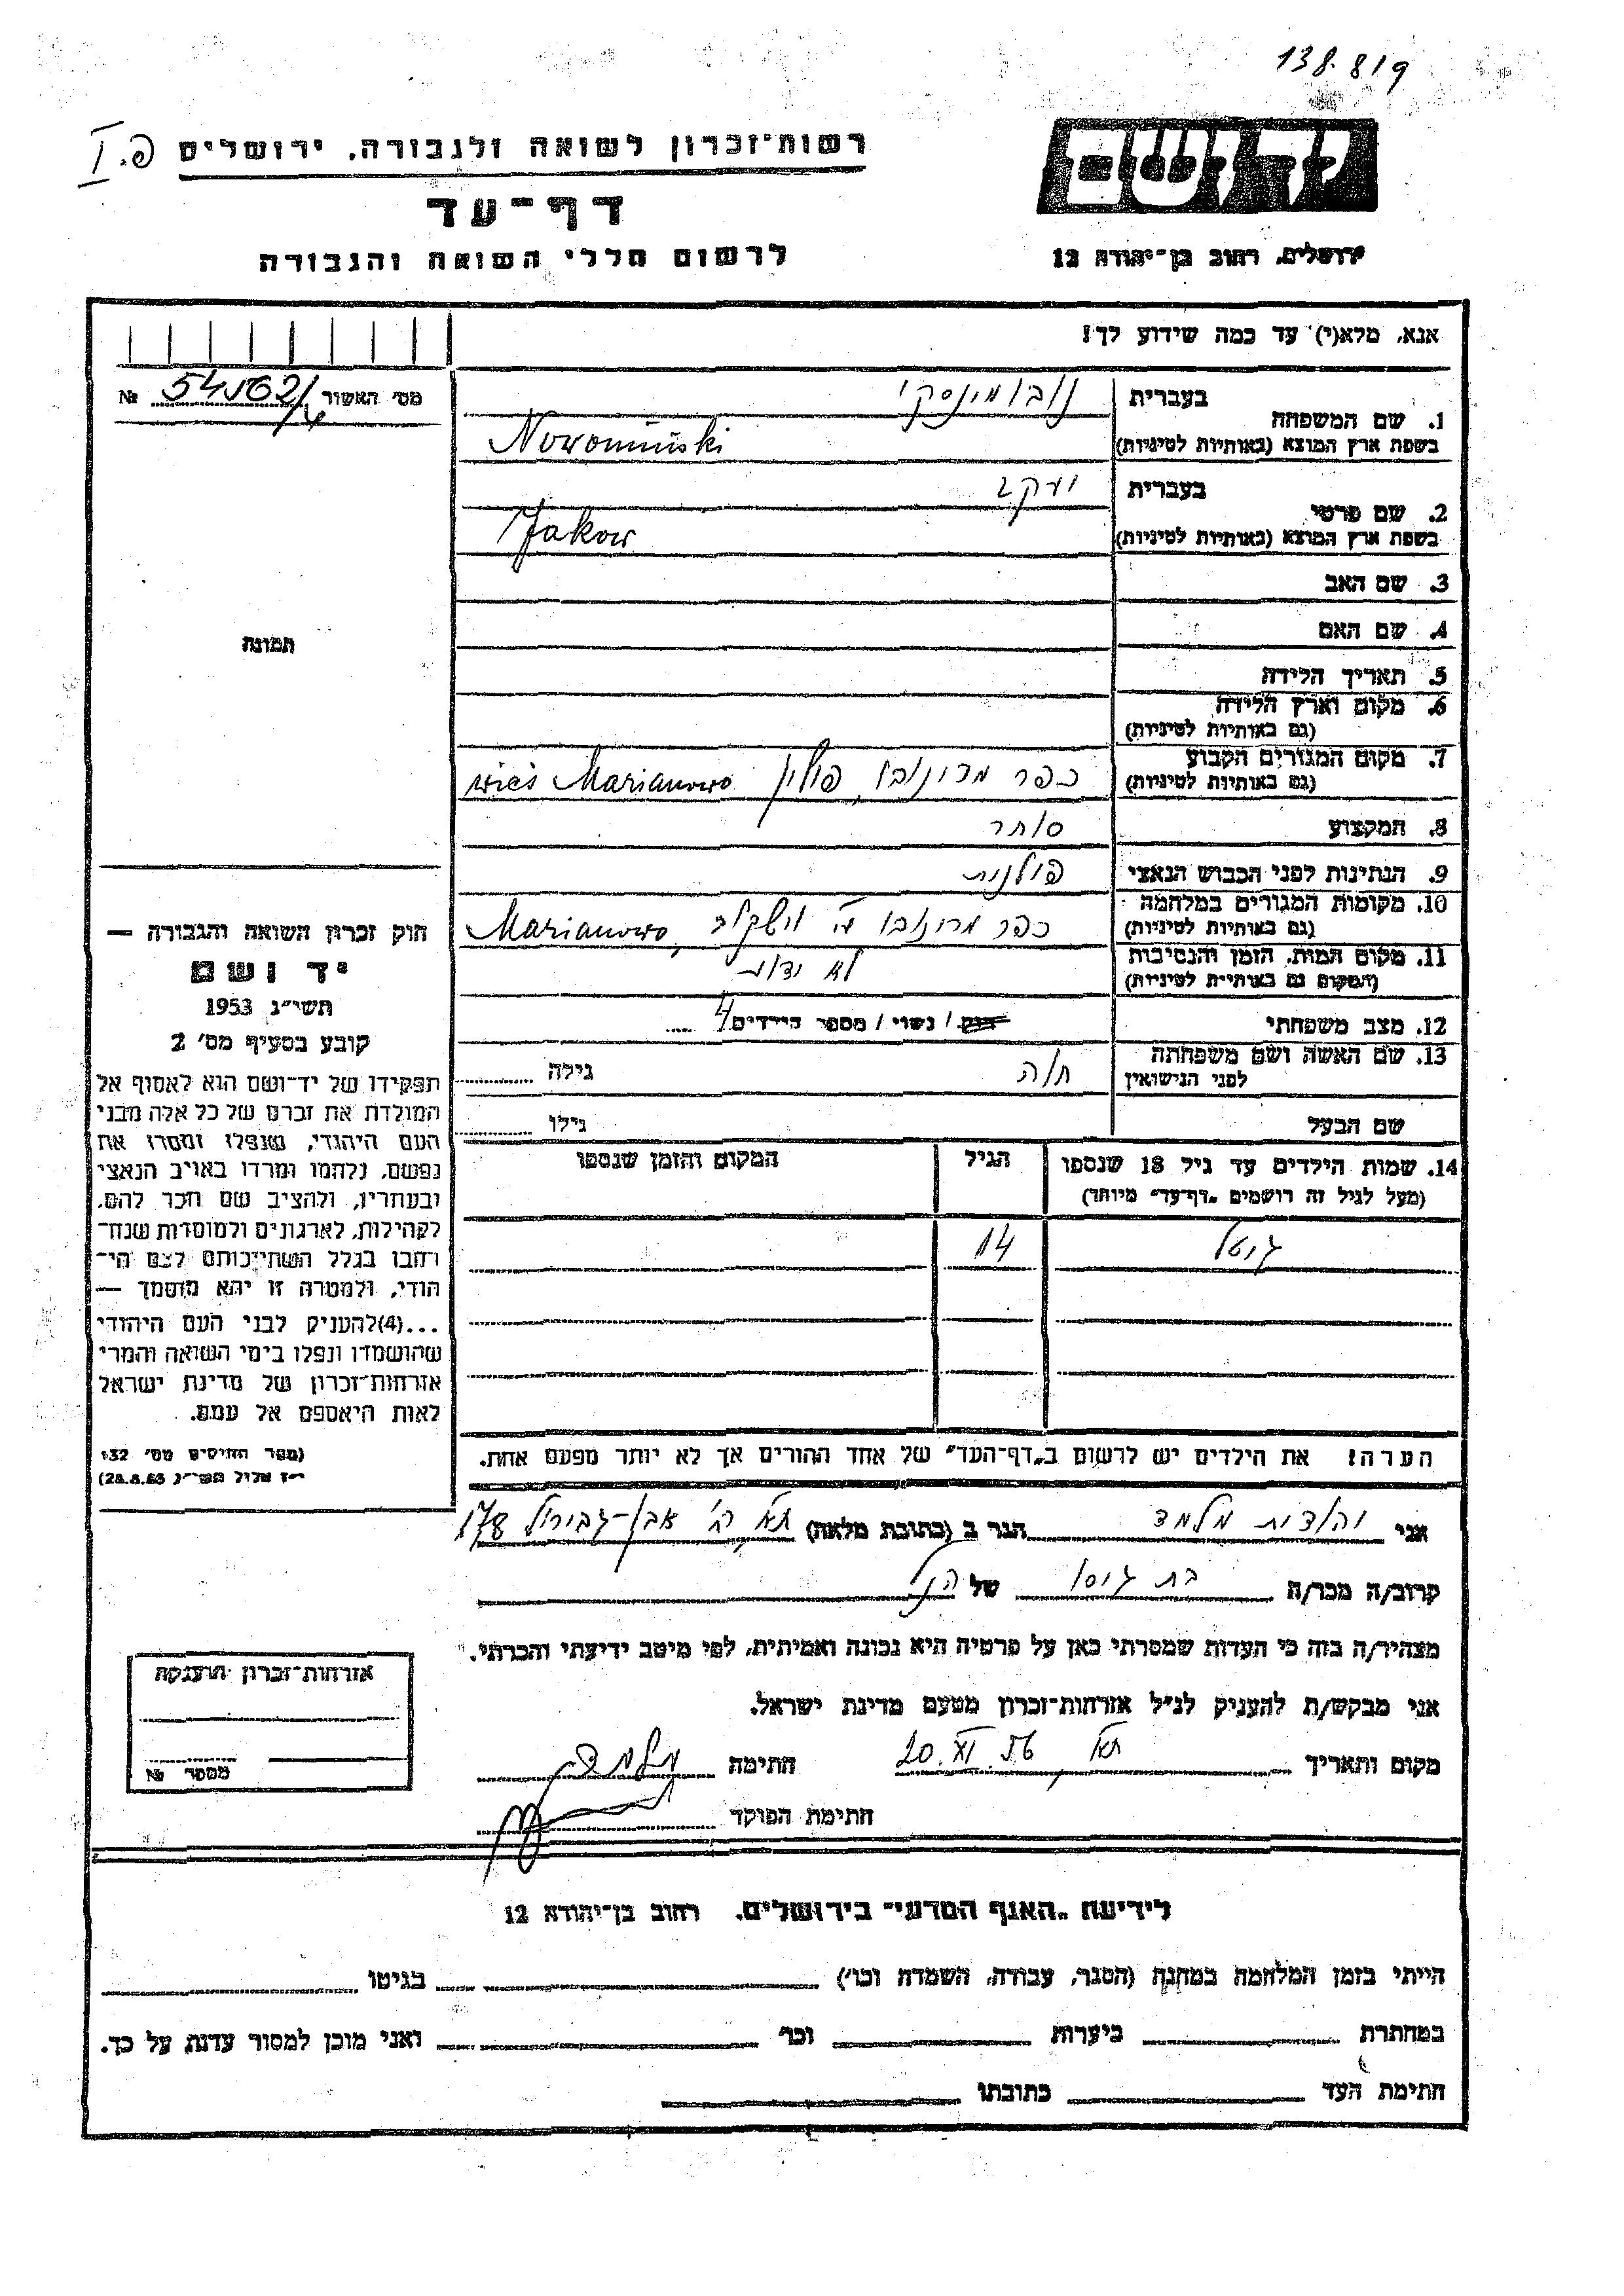 138.819
רשות־זכרון לשואה ולגבורה, ירושלים
פ. I
דף־עד
לרשום חללי השואה והגבורה
יד ושם
ירושלים, רחוב בן־יהודה 12
אנא, מלא(י) עד כמה שידוע לך!
מס׳ האשור № 
1. שם המשפחה
בעברית נובומינסקי
בשפת ארץ המוצא (באותיות לטיניות) Nowomiński
2. שם פרטי
בעברית יעקב
בשפת ארץ המוצא (באותיות לטיניות) Jakow
3. שם האב
4. שם האם
5. תאריך הלידה
6. מקום וארץ הלידה
(גם באותיות לטיניות)
7. מקום המגורים הקבוע
(גם באותיות לטיניות) כפר מרינובו, פולין wieś Marianowo
8. המקצוע סוחר
9. הנתינות לפני הכבוש הנאצי פולנית
10. מקומות המגורים במלחמה
(גם באותיות לטיניות) כפר מרינובו Marianowo,
11. מקום המות, הזמן והנסיבות
(המקום גם באותיות לטיניות) לא ידוע
12. מצב משפחתי רווק / נשוי / מספר הילדים 4
13. שם האשה ושם משפחתה
לפני הנישואין חוה גילה
שם הבעל גילו
14. שמות הילדים עד גיל 18 שנספו
(מעל לגיל זה רושמים „דף־עד״ מיוחד)
הגיל
המקום והזמן שנספו
גוטל 14
הערה! את הילדים יש לרשום ב„דף־העד״ של אחד ההורים אך לא יותר מפעם אחת.
תמונה
חוק זכרון השואה והגבורה —
יד ושם
תשי״ג 1953
קובע בסעיף מס׳ 2
תפקידו של יד־ושם הוא לאסוף אל
המולדת את זכרם של כל אלה מבני
העם היהודי, שנפלו ומסרו את
נפשם, נלחמו ומרדו באויב הנאצי
ובעוזריו, ולהציב שם וזכר להם,
לקהילות, לארגונים ולמוסדות שנח־
רבו בגלל השתייכותם לעם הי־
הודי, ולמטרה זו יהא מוסמך —
...(4)להעניק לבני העם היהודי
שהושמדו ונפלו בימי השואה והמרי
אזרחות־זכרון של מדינת ישראל
לאות היאספם אל עמם.
(ספר החוקים מס׳ 132
י״ז אלול תשי״ג 28.8.53)
אני יהודית מלמד הגר ב (כתובת מלאה) תא רח׳ אבן־גבירול 178
קרוב/ה מכר/ה בת גיסו של הנ״ל
מצהיר/ה בזה כי העדות שמסרתי כאן על פרטיה היא נכונה ואמיתית, לפי מיטב ידיעתי והכרתי.
אני מבקש/ת להעניק לנ״ל אזרחות־זכרון מטעם מדינת ישראל.
מקום ותאריך תא 20.XI.56 חתימה מלמד
חתימת הפוקד
אזרחות־זכרון הוענקה
מספר №
לידיעת „האגף המדעי״ בירושלים, רחוב בן־יהודה 12
הייתי בזמן המלחמה במחנה (הסגר, עבודה, השמדה וכו׳) בגיטו
במחתרת ביערות וכו׳ ואני מוכן למסור עדות על כך.
חתימת העד כתובתו